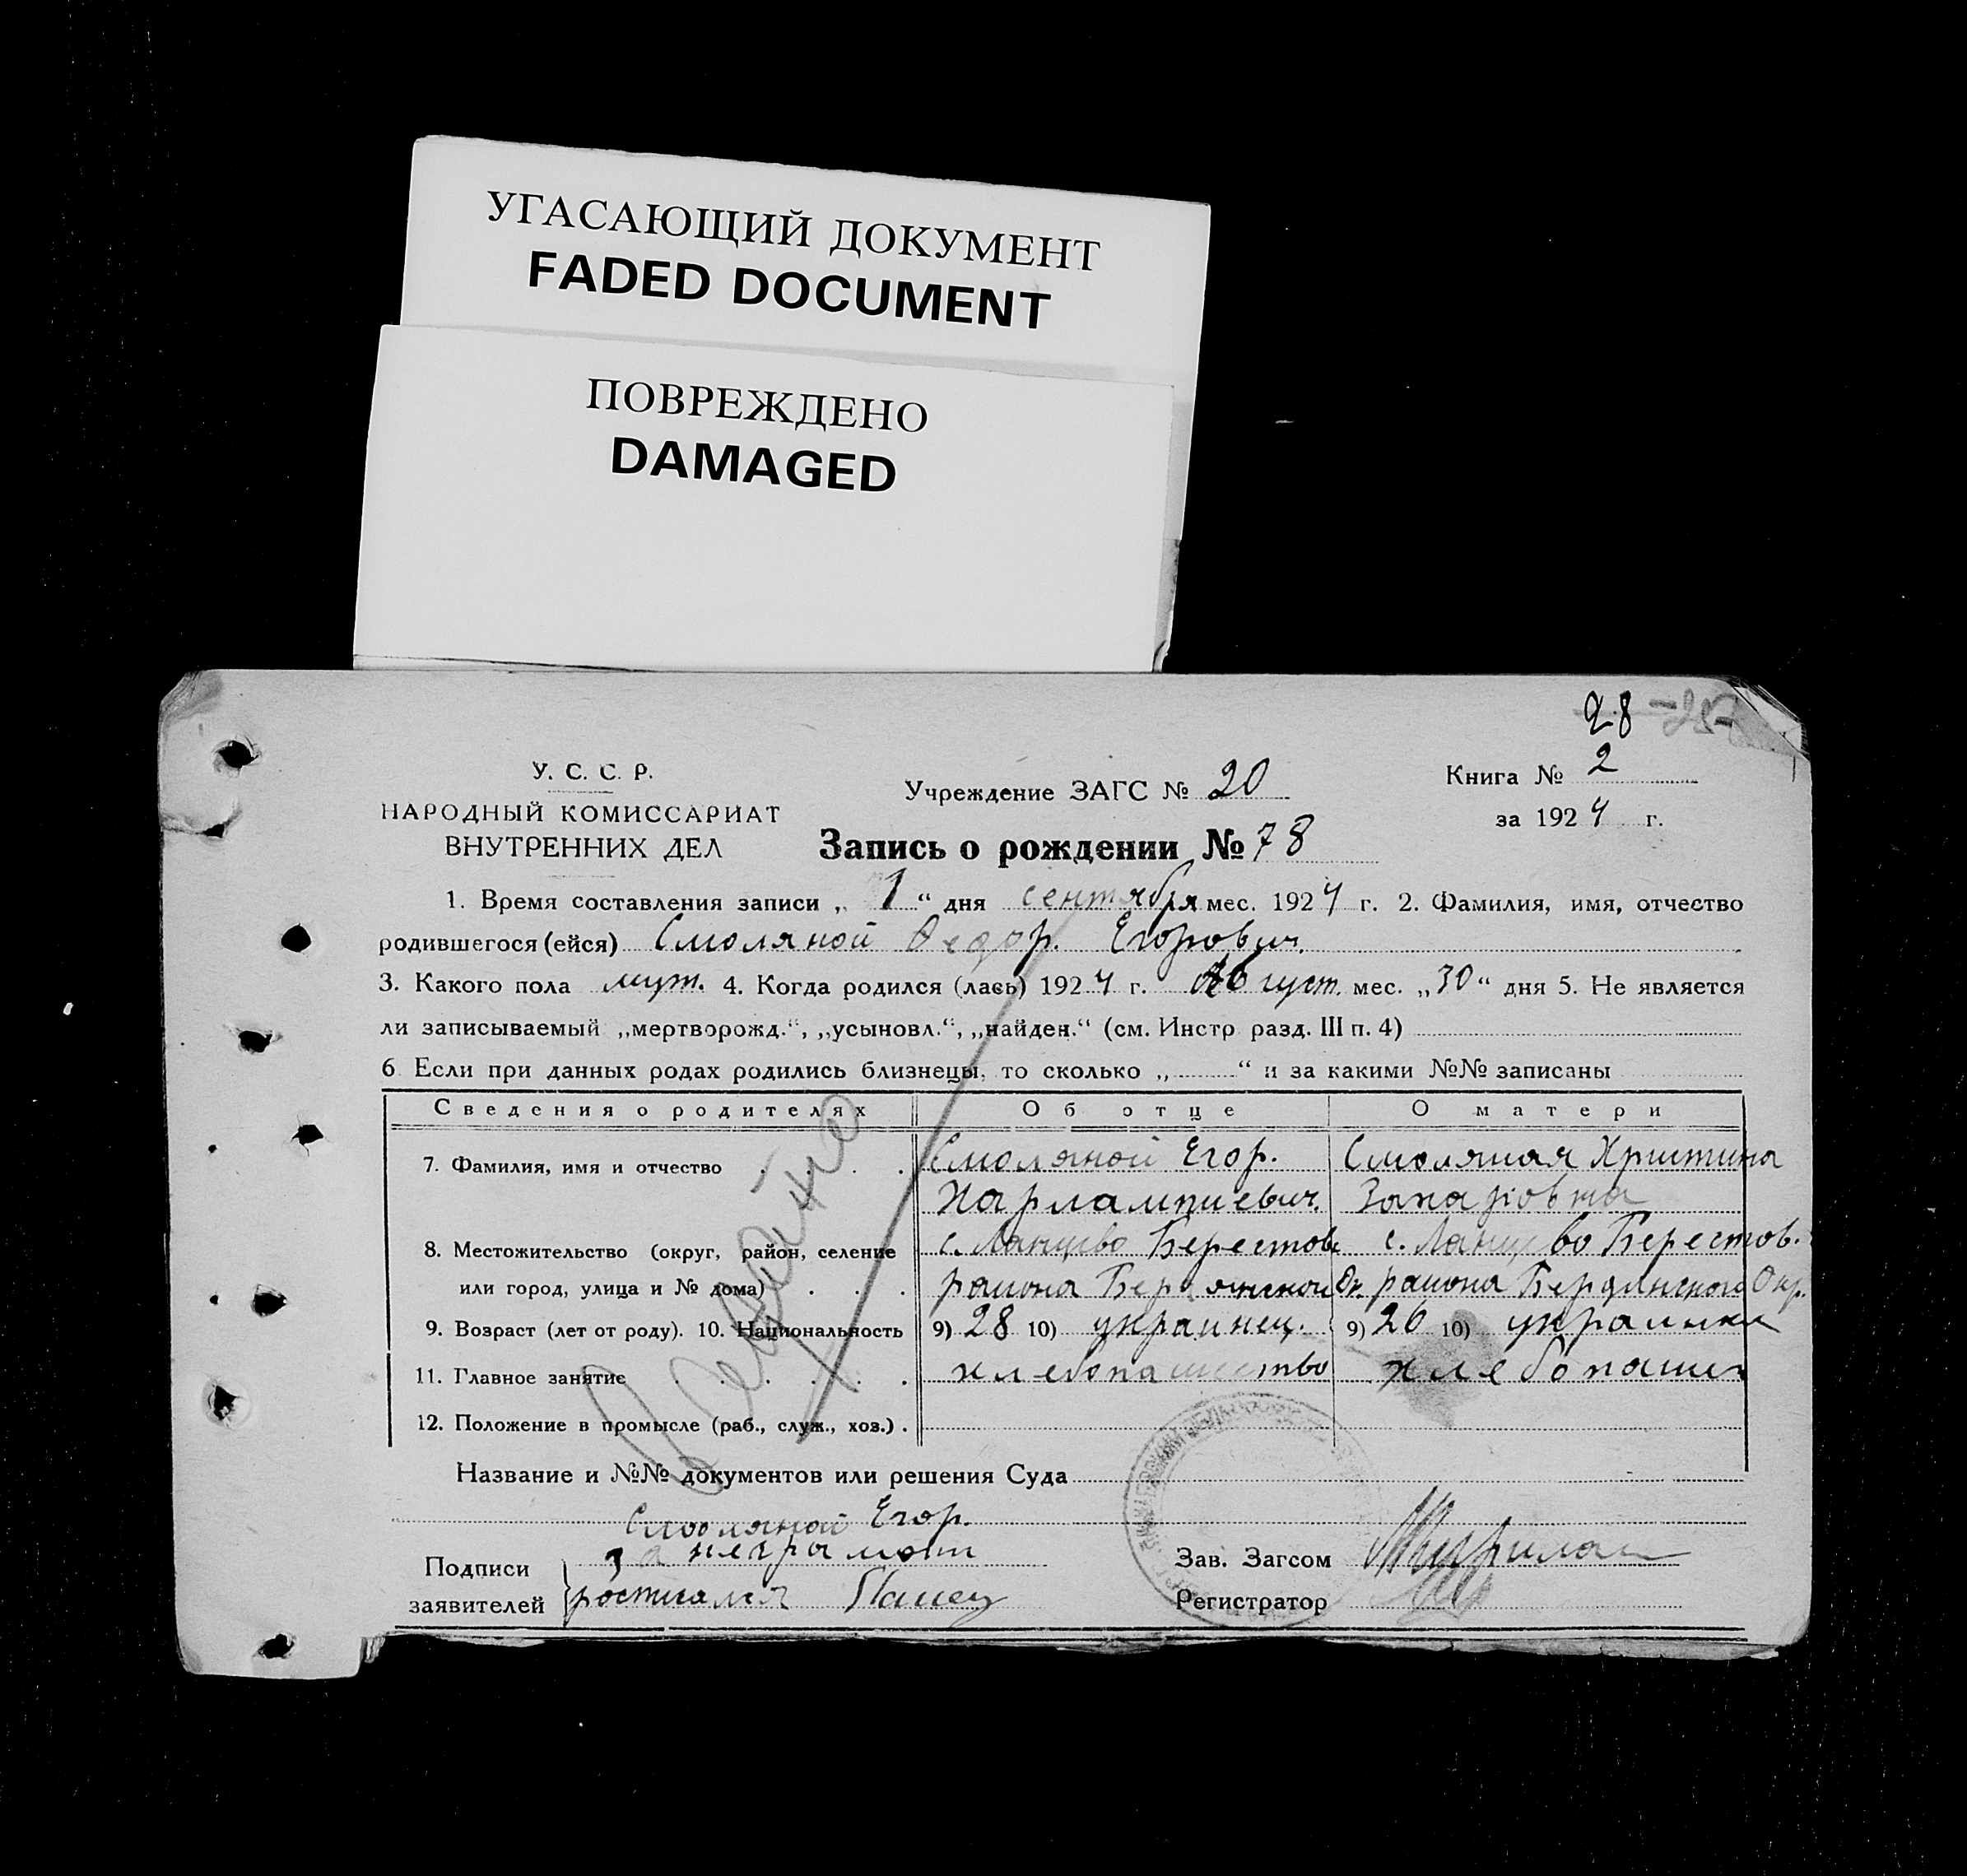 УГАСАЮЩИЙ ДОКУМЕНТ
FADED DOCUMENT
ПОВРЕЖДЕНО
DAMAGED
28
У. С. С. Р.
НАРОДНЫЙ КОМИССАРИАТ
ВНУТРЕННИХ ДЕЛ
Учреждение ЗАГС № 20
Книга № 2
за 1924 г.
Запись о рождении № 78
1. Время составления записи „ 1 “ дня сентября мес. 1924 г. 2. Фамилия, имя, отчество
родившегося (ейся) Смоляной Федор. Егорович.
3. Какого пола муж. 4. Когда родился (лась) 1924 г. Август. мес. „30“ дня 5. Не является
ли записываемый „мертворожд.“, „усыновл.“, „найден.“ (см. Инстр разд. III п. 4)
6 Если при данных родах родились близнецы, то сколько „ “ и за какими №№ записаны
Сведения о родителях Об отце О матери
7. Фамилия, имя и отчество Смоляной Егор. Смоляная Христина
Харлампиевич. Захаровна
8. Местожительство (округ, район, селение с. Ланцево Берестов с. Ланцево Берестов.
или город, улица и № дома) района Бердянской Ок. района Бердянского Окр.
9. Возраст (лет от роду). 10. Национальность 9) 28 10) украинец. 9) 26 10) украинка
11. Главное занятие хлебопашество хлебопашес
12. Положение в промысле (раб., служ., хоз.)
Название и №№ документов или решения Суда
Смоляной Егор.
Подписи за неграмотн
заявителей ростисался
Зав. Загсом
Регистратор